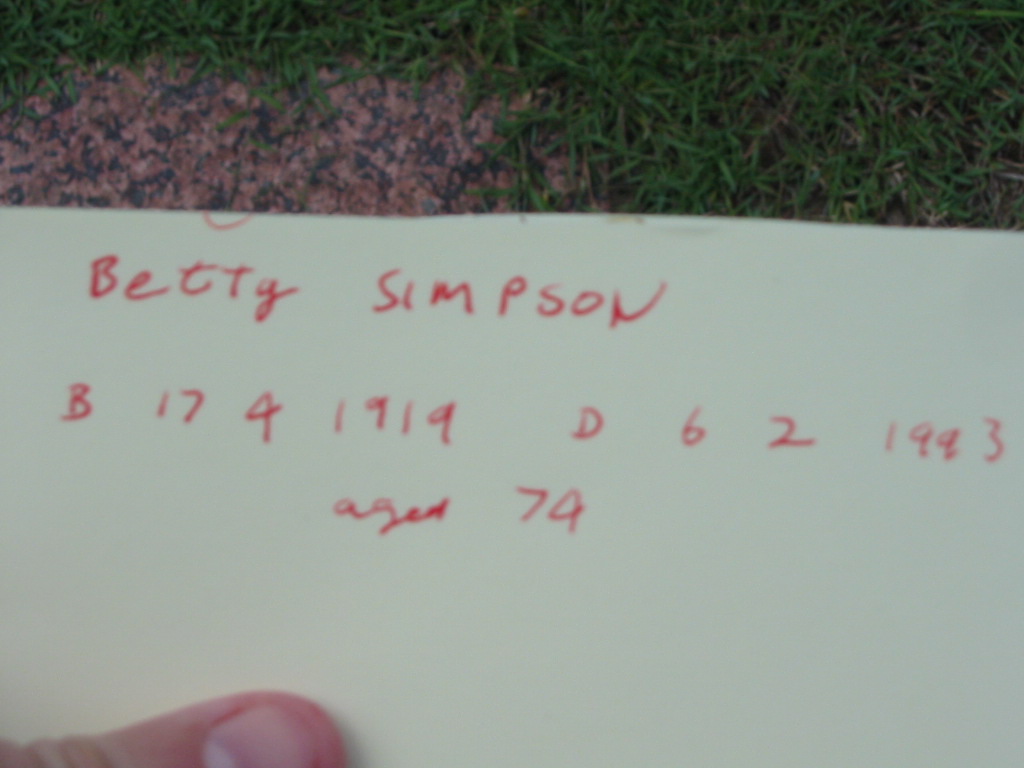 Betty SIMPSON
B 17 4 1919 D 6 2 1993
aged 74